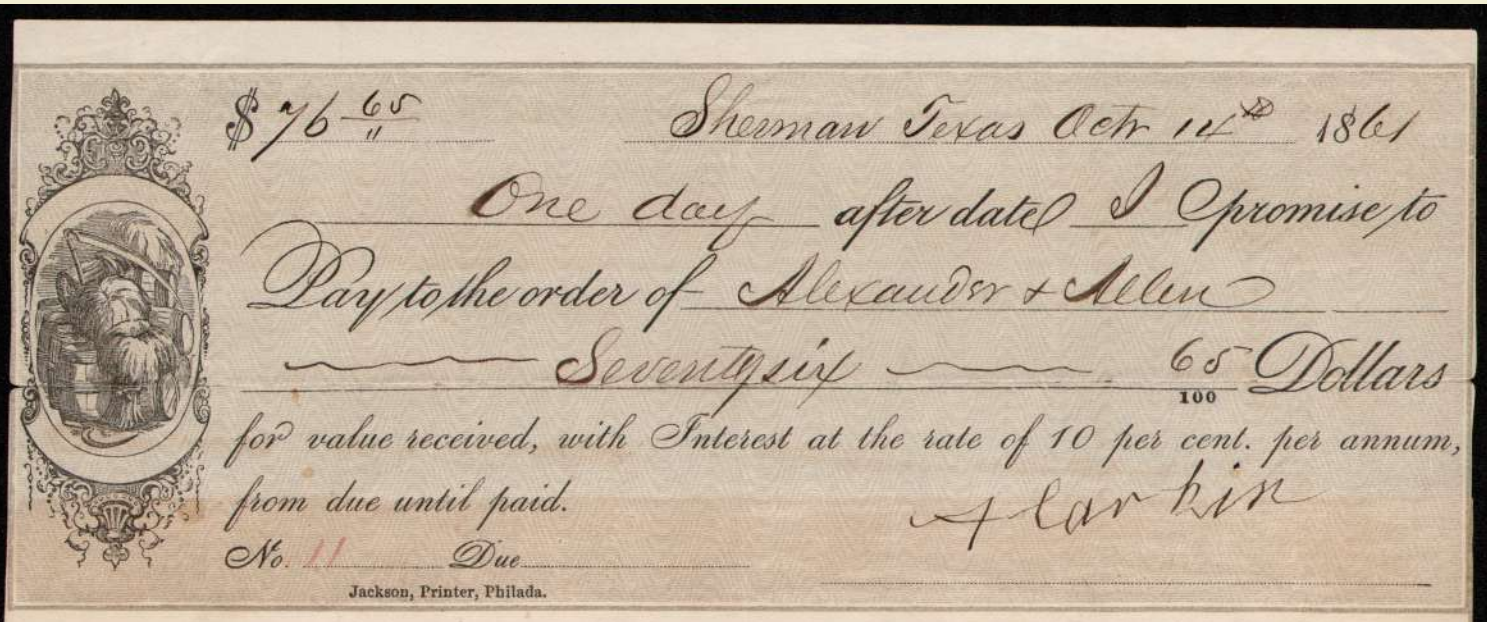 $ 76 65/" Sherman Texas Octr 14th 1861
One day after date I promise to
Pay to the order of Alexander & Allen
Seventy six 65/100 Dollars
for value received, with Interest at the rate of 10 per cent. per annum,
from due until paid.
No. 11 Due
Jackson, Printer, Philada.